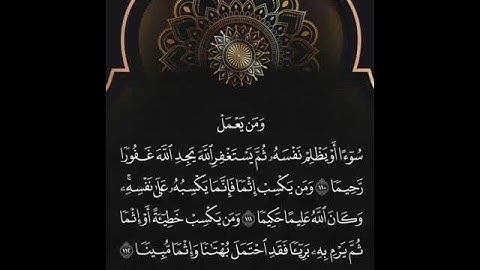 وَمَن يَعۡمَلۡ
سُوٓءًا أَوۡ يَظۡلِمۡ نَفۡسَهُۥ ثُمَّ يَسۡتَغۡفِرِ ٱللَّهَ يَجِدِ ٱللَّهَ غَفُورٗا
رَّحِيمٗا ١١٠ وَمَن يَكۡسِبۡ إِثۡمٗا فَإِنَّمَا يَكۡسِبُهُۥ عَلَىٰ نَفۡسِهِۦۚ
وَكَانَ ٱللَّهُ عَلِيمًا حَكِيمٗا ١١١ وَمَن يَكۡسِبۡ خَطِيٓـَٔةً أَوۡ إِثۡمٗا
ثُمَّ يَرۡمِ بِهِۦ بَرِيٓـٔٗا فَقَدِ ٱحۡتَمَلَ بُهۡتَٰنٗا وَإِثۡمٗا مُّبِينٗا ١١٢